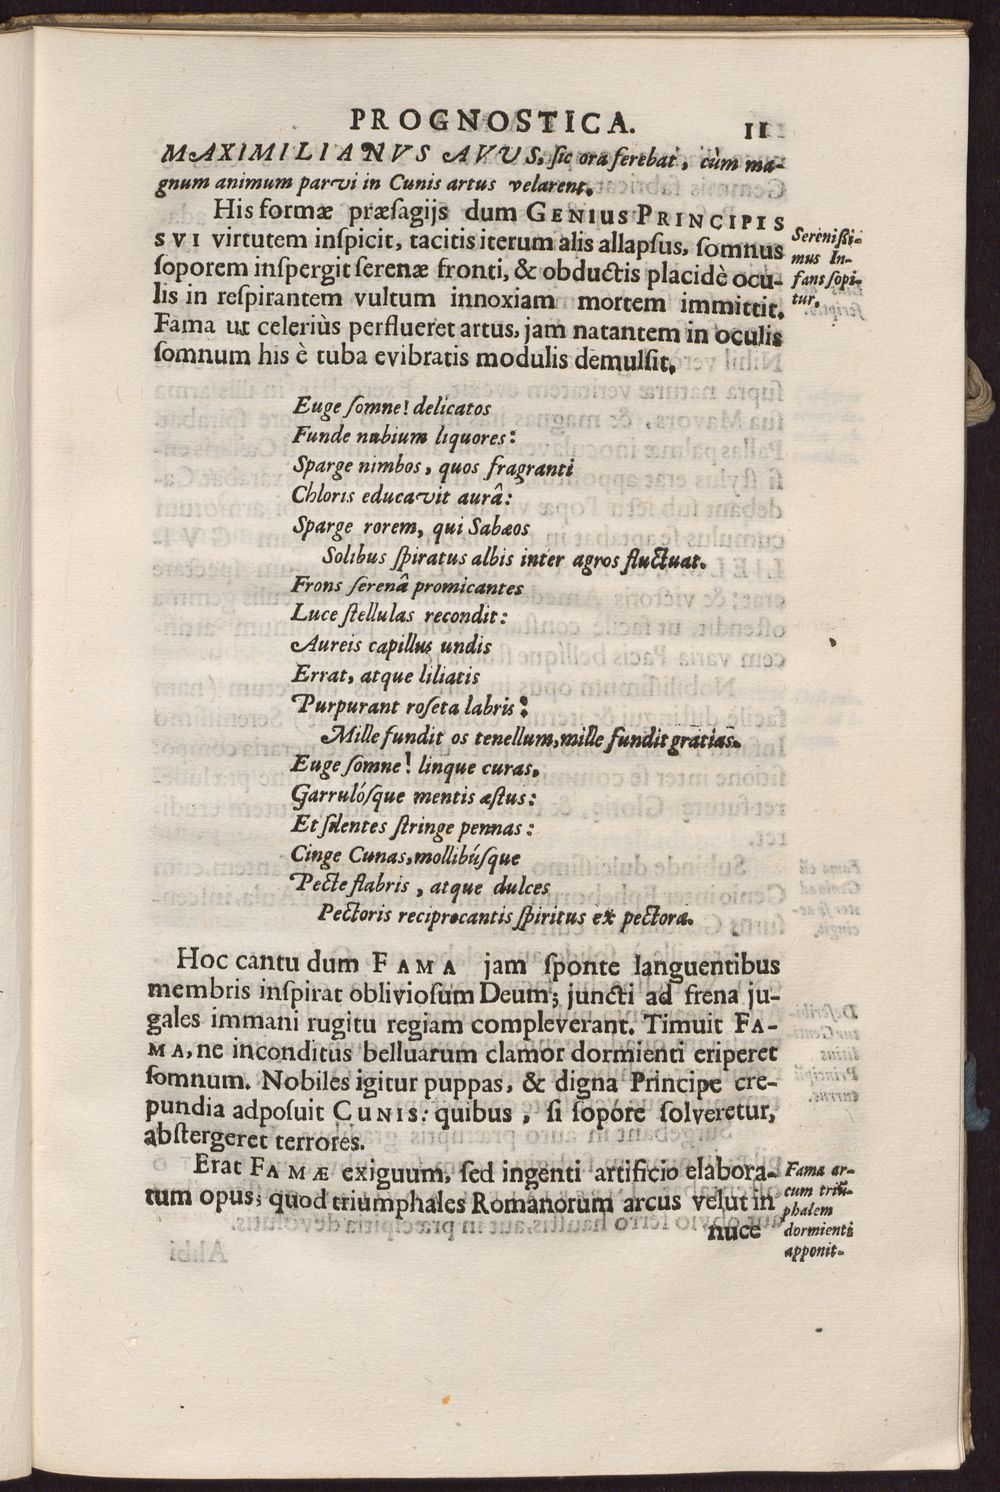 PROGNOSTICA. 11
MAXIMILIANVS AVUS, ſic ora ferebat, cùm ma-
gnum animum parvi in Cunis artus velarent.
His formæ præſagijs dum GENIUS PRINCIPIS
SVI virtutem inſpicit, tacitis iterum alis allapſus, ſomnus
ſoporem inſpergit ſerenæ fronti, & obductis placidè ocu-
lis in reſpirantem vultum innoxiam mortem immittit.
Fama ut celeriùs perflueret artus, jam natantem in oculis
ſomnum his è tuba evibratis modulis demulſit.
Sereniſſi-
mus In-
fans ſopi-
tur.
Euge ſomne! delicatos
Funde nubium liquores:
Sparge nimbos, quos fragranti
Chloris educavit aurâ:
Sparge rorem, qui Sabæos
Solibus ſpiratus albis inter agros fluctuat.
Frons ſerenâ promicantes
Luce ſtellulas recondit:
Aureis capillus undis
Errat, atque liliatis
Purpurant roſeta labris:
Mille fundit os tenellum, mille fundit gratias.
Euge ſomne! linque curas,
Garrulóſque mentis æſtus:
Et ſilentes ſtringe pennas:
Cinge Cunas, mollibúſque
Pecte flabris, atque dulces
Pectoris reciprocantis ſpiritus ex pectora.
Hoc cantu dum FAMA jam ſponte languentibus
membris inſpirat oblivioſum Deum; juncti ad frena ju-
gales immani rugitu regiam compleverant. Timuit FA-
MA, ne inconditus belluarum clamor dormienti eriperet
ſomnum. Nobiles igitur puppas, & digna Principe cre-
pundia adpoſuit CUNIS: quibus, ſi ſopore ſolveretur,
abſtergeret terrores.
Erat FAMÆ exiguum, ſed ingenti artificio elabora-
tum opus; quod triumphales Romanorum arcus velut in
nuce
Fama ar-
cum triũ-
phalem
dormienti
apponit.